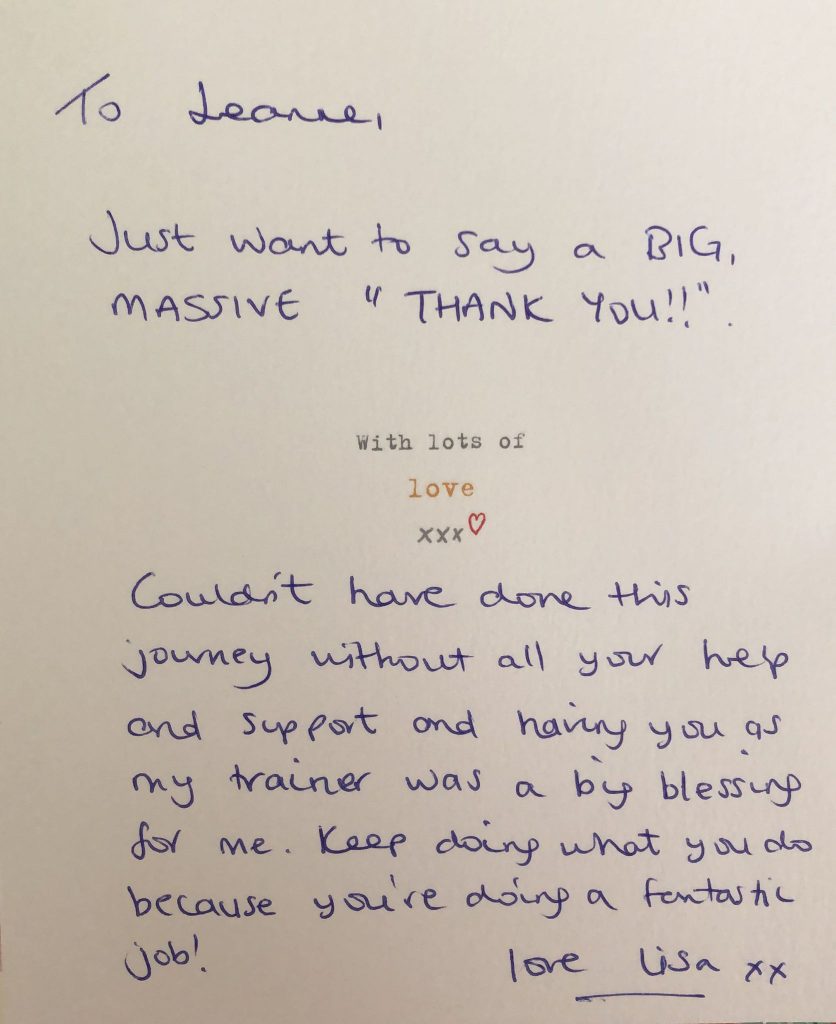 To Leanne,
Just want to say a BIG,
MASSIVE "THANK YOU!!".
With lots of
love
xxx♡
Couldn't have done this
journey without all your help
and support and having you as
my trainer was a big blessing
for me. Keep doing what you do
because you're doing a fantastic
job!
love Lisa xx